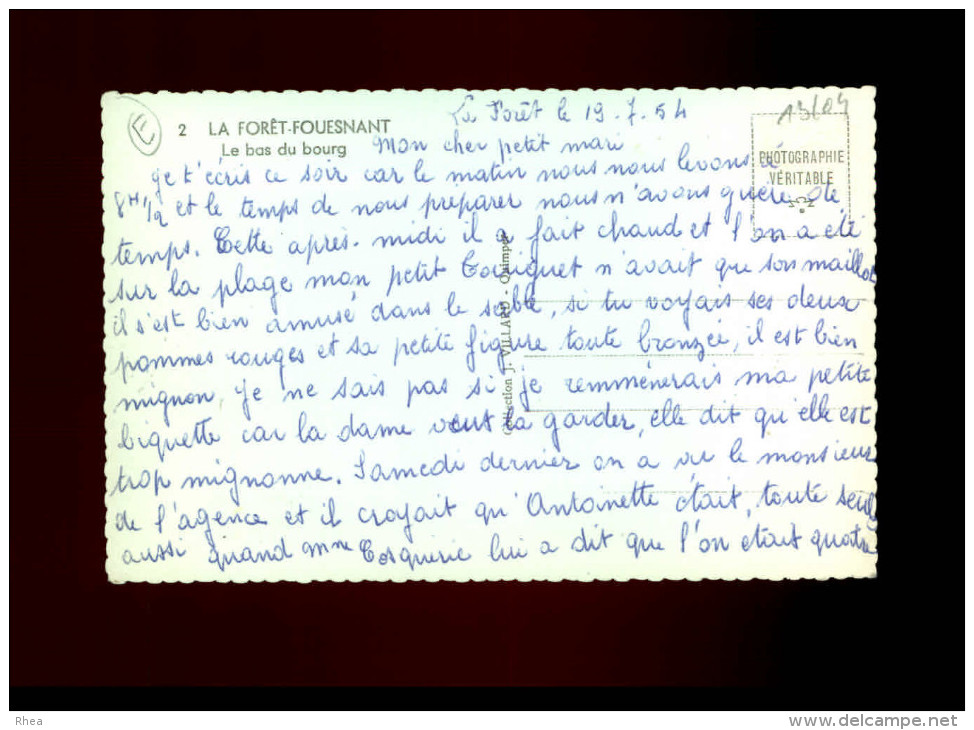 La Forêt le 19.7.54
13609
E
2 LA FORÊT-FOUESNANT
Le bas du bourg
PHOTOGRAPHIE
VÉRITABLE
Mon cher petit mari
Je t'écris ce soir car le matin nous nous levons à
8H 1/2 et le temps de nous préparer nous n'avons guère de
temps. Cette après-midi il a fait chaud et l'on a été
sur la plage mon petit n'avait que son maillot
il s'est bien amusé dans le sable, si tu voyais ses deux
pommes rouges et sa petite figure toute bronzée, il est bien
mignon. Je ne sais pas si je remmènerais ma petite
biquette car la dame veut la garder, elle dit qu'elle est
trop mignonne. Samedi dernier on a vu le monsieur
de l'agence et il croyait qu'Antoinette était, toute seule
aussi quand Mme lui a dit que l'on était quatre
Collection J. VILLARD - Quimper
Rhea
delcampe.net